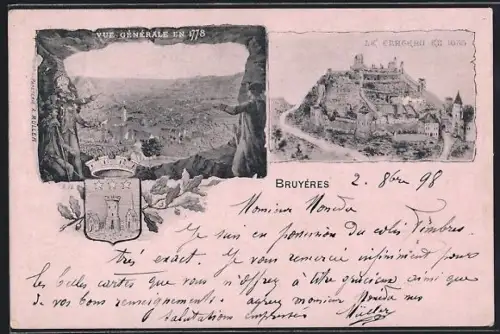 VUE GÉNÉRALE EN 1778
BRUYÈRES
2. 8bre 98
Monsieur
Je suis en possession du colis Timbres.
très exact. Je vous remercie infiniment pour
les belles cartes que vous m'offrez à titre gracieux ainsi que
de vos bons renseignements. agréez monsieur mes
salutations empressées